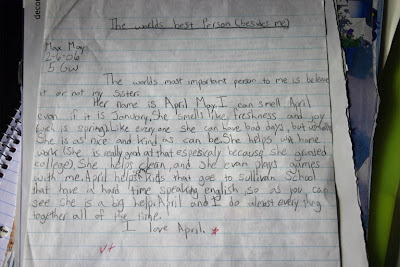 The worlds best Person (besides me)
Max May
2-6-06
5 GW
The worlds most important person to me is beleve
it or not my sister.
Her name is April May. I can smell April
evan if it is January. She smells like freshness and joy
(wich is spring). Like every one she can have bad days, but usually
She is as nice and kind as can be. She helps with home
work (She is really good at that espesicaly because she
college). She helps clean, and she evan plays games
with me. April helps kids that goe to Sullivan School
that have a hard time speaking english, so as you can
see she is a big help. April and I do almost every thing
together all of the time.
I love April.
v+